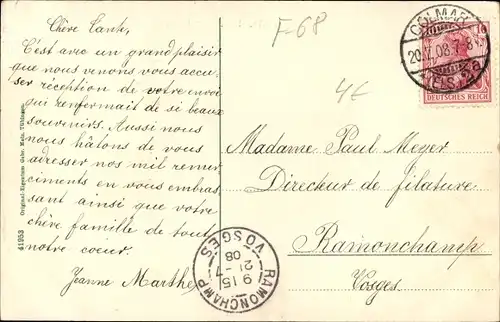 F-68
4€
Chère Tante,
C'est avec un grand plaisir
que nous venons vous accu-
ser réception de votre envoi
qui renfermait de si beaux
souvenirs. Aussi nous
nous hâtons de vous
adresser nos mil remer
ciments en vous embras
sant ainsi que votre
chère famille de tout
notre coeur.
Jeanne Marthe
41953 Original-Eigentum Gebr. Metz, Tübingen.
COLMAR
DEUTSCHES REICH
10
Madame Paul Meyer
Directeur de filature
Ramonchamp
Vosges.
RAMONCHAMP
9 15
21-7
08
VOSGES